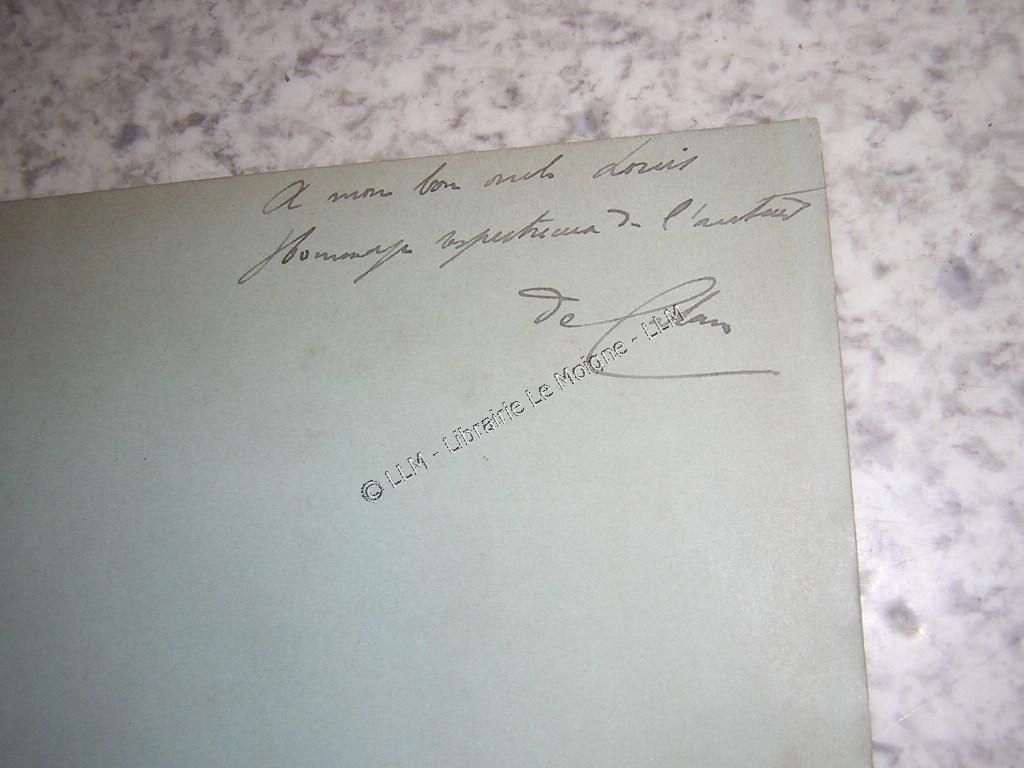 A mon bon oncle Louis
Hommage respectueux de l'auteur
de
© LLM - Librairie Le Moigne - LLM